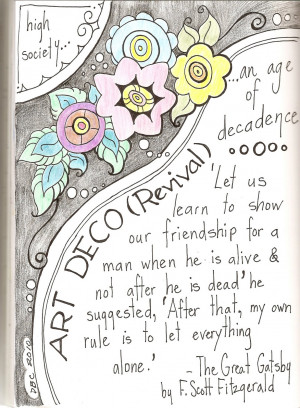 high
society...
...an age
of
decadence
ART DECO (Revival)
'Let us
learn to show
our friendship for a
man when he is alive &
not after he is dead' he
suggested, 'After that, my own
rule is to let everything
alone.'
- The Great Gatsby
by F. Scott Fitzgerald
DBC 2010